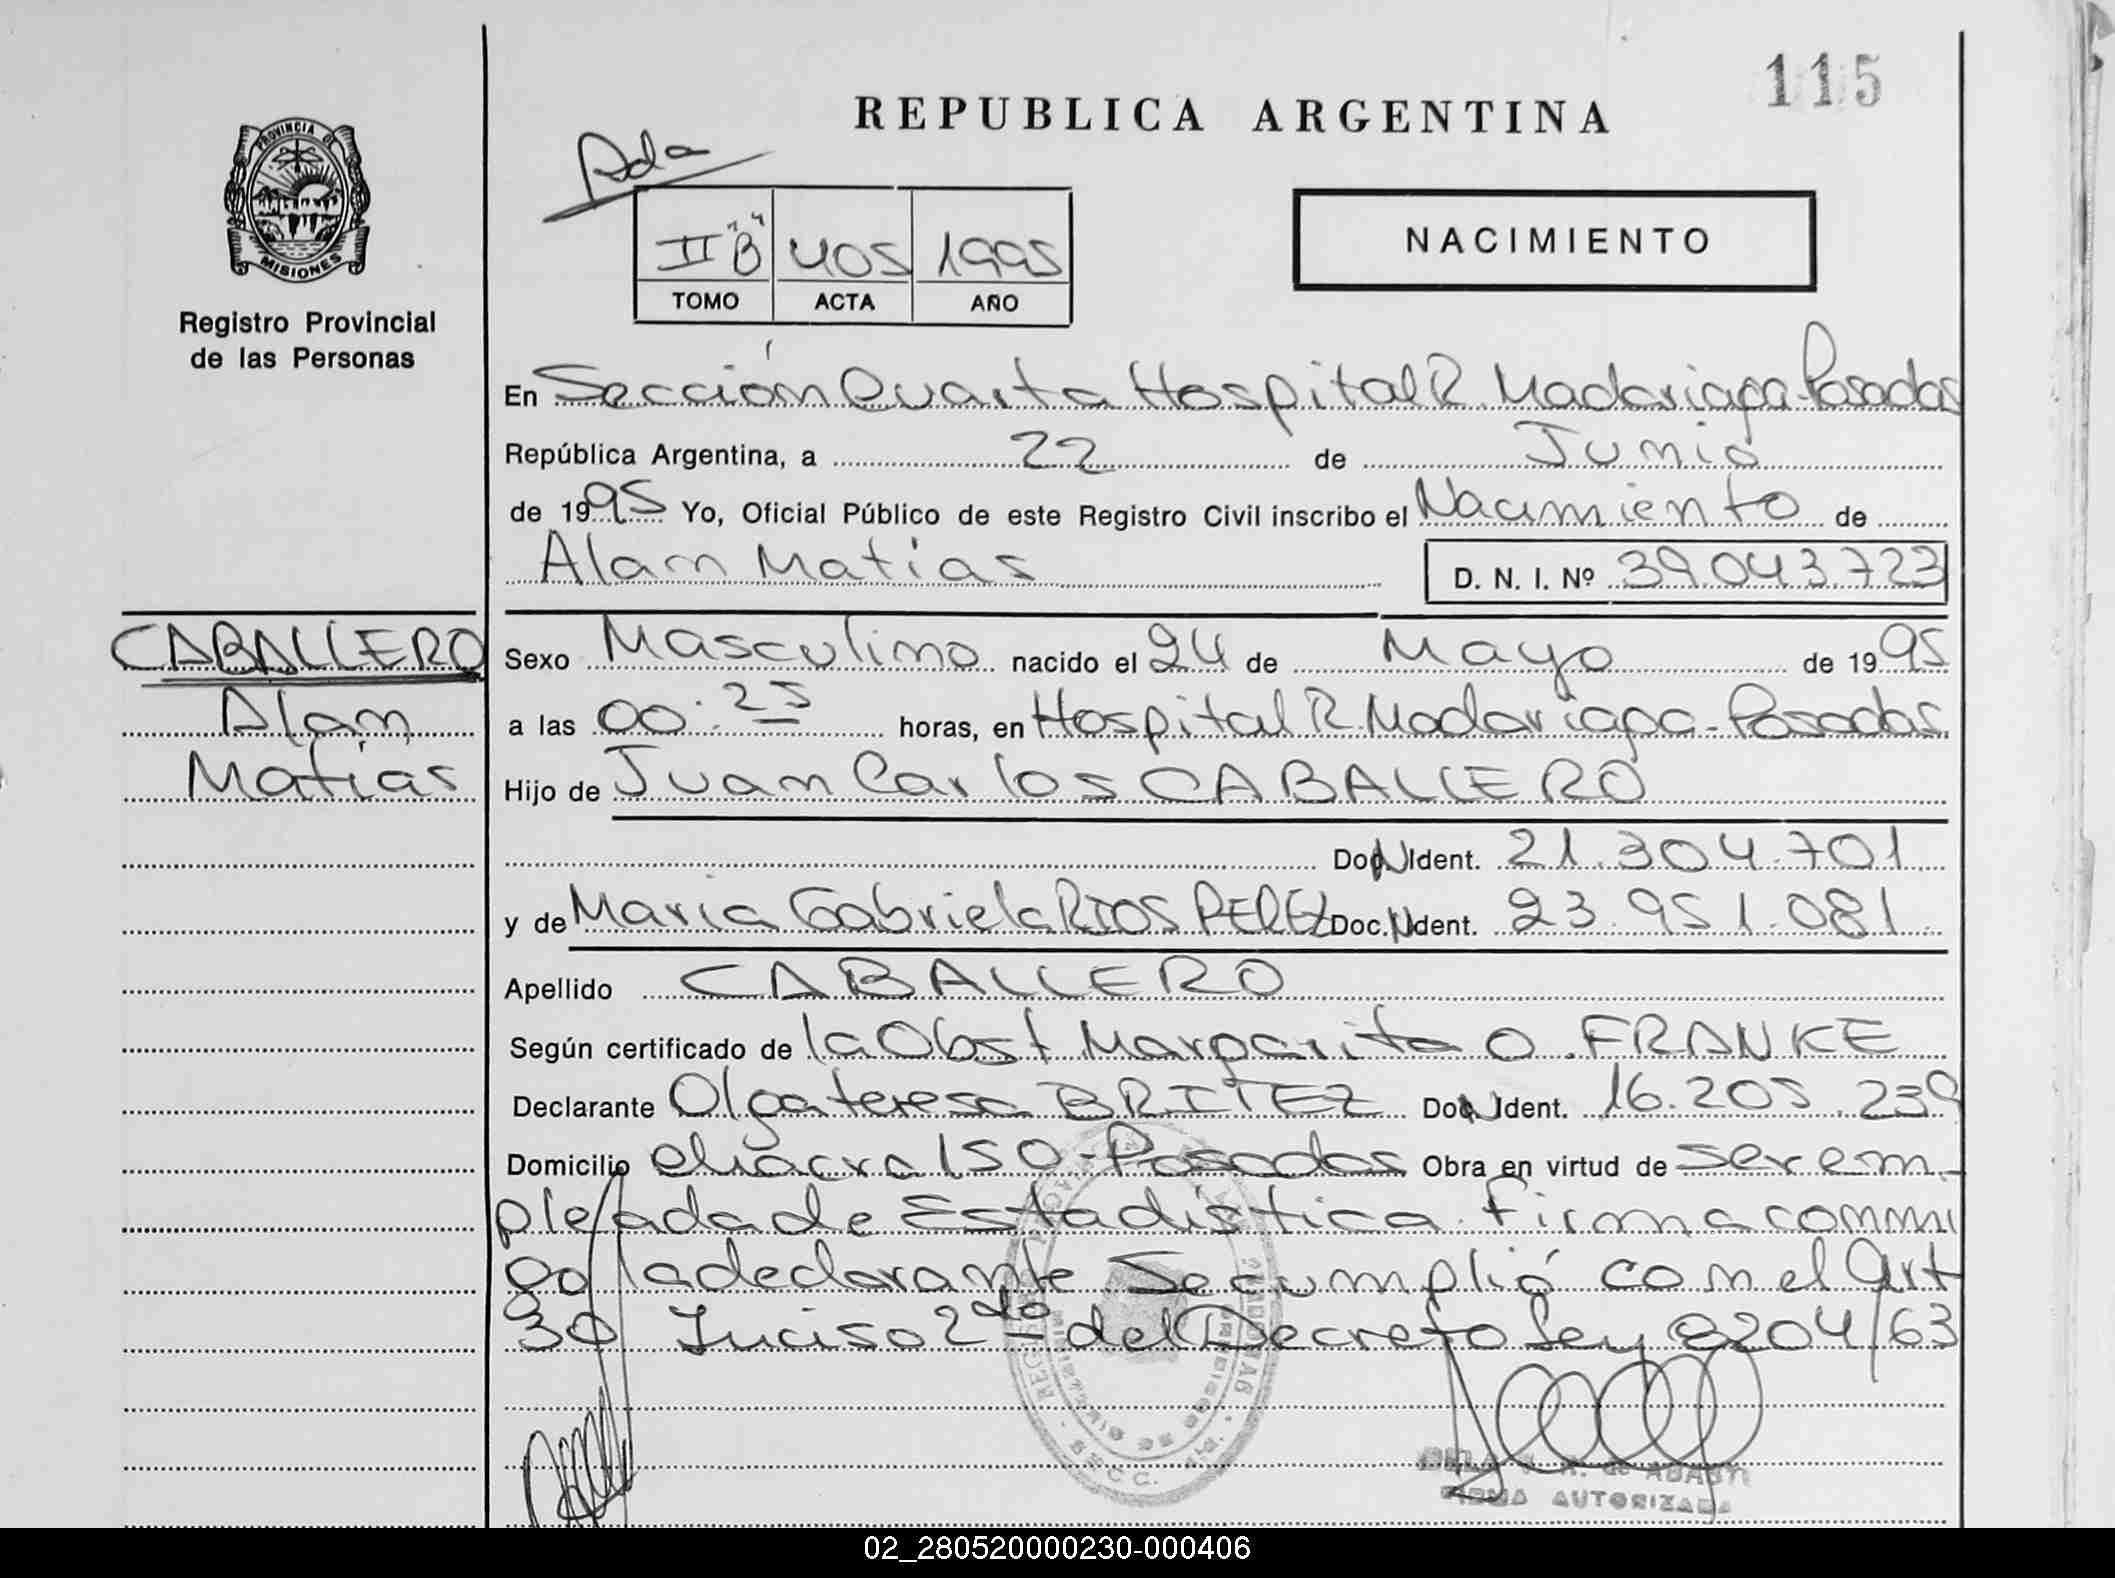 115
REPUBLICA ARGENTINA
Ada
PROVINCIA DE
MISIONES
II "B" 405 1995
TOMO ACTA AÑO
NACIMIENTO
Registro Provincial
de las Personas
En Sección Cuarta Hospital R. Madariaga-Posadas
República Argentina, a 22 de Junio
de 1995 Yo, Oficial Público de este Registro Civil inscribo el Nacimiento de
Alan Matias D. N. I. Nº 39.043.723
CABALLERO
Alan
Matías
Sexo Masculino nacido el 24 de Mayo de 1995
a las 00:25 horas, en Hospital R. Madariaga-Posadas
Hijo de Juan Carlos CABALLERO
Doc. N Ident. 21.304.701
y de Maria Gabriela RIOS PEREZ Doc. N Ident. 23.951.081
Apellido CABALLERO
Según certificado de la Obst Margarita O. FRANKE
Declarante Olga teresa BRITEZ Doc. N Ident. 16.205.239
Domicilio chacra 150-Posadas Obra en virtud de ser em-
pleada de Estadística. firma conmi
go la declarante Se cumplió con el Art
30 Inciso 2do del Decreto Ley 8204/63
de ABASTI
FIRMA AUTORIZADA
02_280520000230-000406